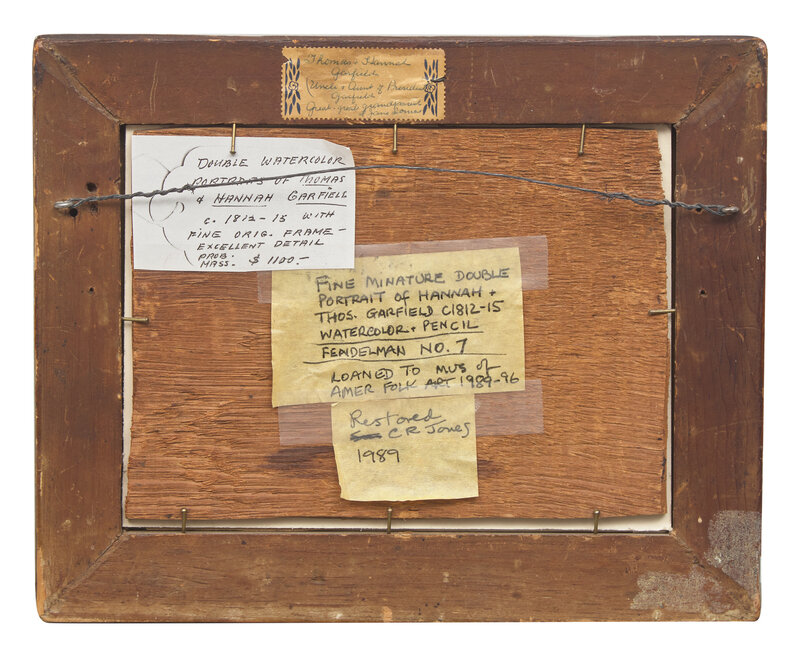 Thomas + Hannah
Garfield
(Uncle + Aunt of President
Garfield
Great-great grandparents
DOUBLE WATERCOLOR
PORTRAITS OF THOMAS
& HANNAH GARFIELD
C. 1812-15 WITH
FINE ORIG. FRAME -
EXCELLENT DETAIL
PROB.
MASS. $ 1100.-
FINE MINATURE DOUBLE
PORTRAIT of HANNAH +
THOS. GARFIELD C1812-15
WATERCOLOR + PENCIL
FENDELMAN NO. 7
LOANED TO MUS of
AMER FOLK ART 1989-96
Restored
C R Jones
1989